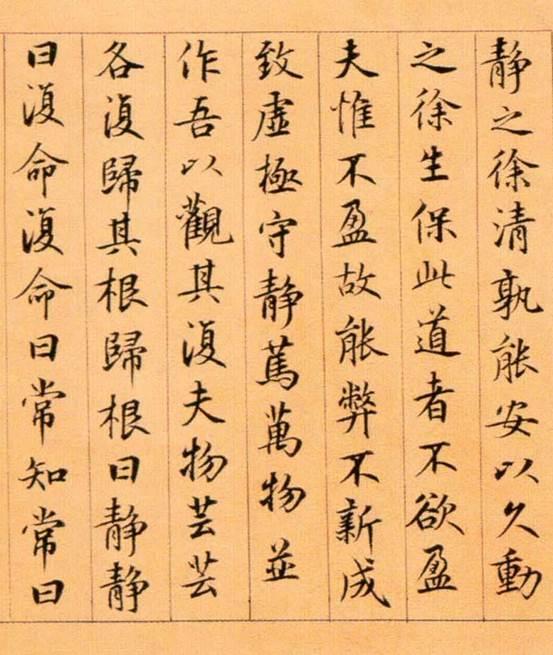 静之徐清孰能安以久動
之徐生保此道者不欲盈
夫惟不盈故能弊不新成
致虛極守静篤萬物並
作吾以觀其復夫物芸芸
各復歸其根歸根曰静静
曰復命復命曰常知常曰